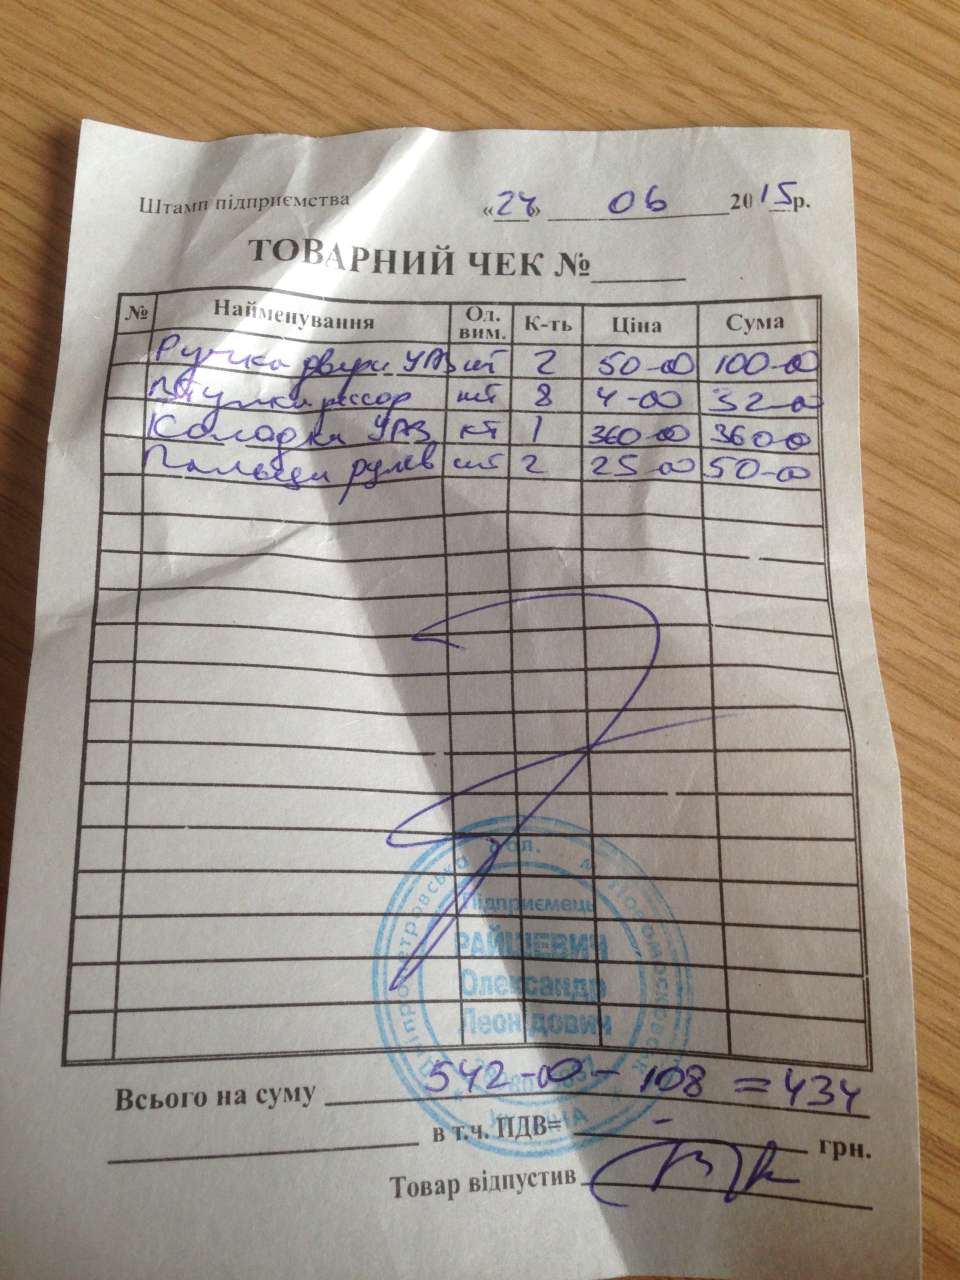 Штамп підприємства «24» 06 2015р.
ТОВАРНИЙ ЧЕК №
№ Найменування Од. вим. К-ть Ціна Сума
Ручка двери УАЗ шт 2 50-00 100-00
Втулки рессор шт 8 4-00 32-00
Колодка УАЗ кт 1 360-00 360-00
Пальцы рулев шт 2 25-00 50-00
Дніпропетровська обл. м. Новомосковськ
Підприємець
РАЙШЕВИЧ
Олександр
Леонідович
УКРАЇНА
Всього на суму 542-00 - 108 = 434
в т.ч. ПДВ= - грн.
Товар відпустив